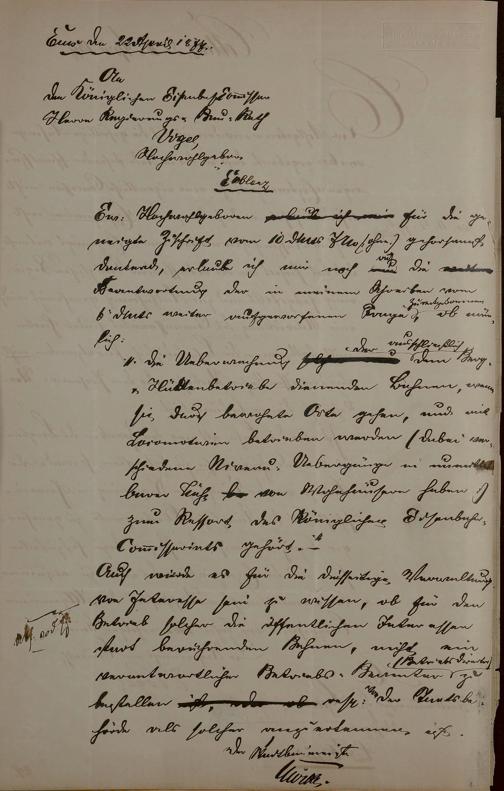 Ems den 22 April 1877.
An
den Königlichen Eisenbahn Commissar
Herrn Regierungs- Bau-Rath
Vogel,
Hochwohlgeboren
Coblenz
Ew: Hochwohlgeboren erlaube ich mir für die ge-
neigte Zuschrift vom 10 dMts gehorsamst
dankend, erlaube ich mir noch auf die
Beantwortung der in meinem Schreiben vom
dMts weiter aufgeworfenen Frage zurückzukommen, ob näm-
lich:
die Ueberwachung der ausschließlich dem Berg-
u Hüttenbetriebe dienenden Bahnen, wenn
sie durch bewohnte Orte gehen, und mit
Locomotiven betrieben werden (dabei ver-
schiedene Niveau-Uebergänge in unmittel-
barer Nähe von Wohnhäusern haben)
zum Ressort des Königlichen Eisenbahn-
Commissariats gehört.
Auch würde es für die diesseitige Verwaltung
von Interesse sein zu wissen, ob für den
Betrieb solcher die öffentlichen Interessen
stark berührenden Bahnen, nicht ein
verantwortlicher Betriebs-Beamter (Betriebsdirector) zu
bestellen ist, oder ob resp: der
hörde als solcher anzuerkennen ist.
Der Bürgermeister